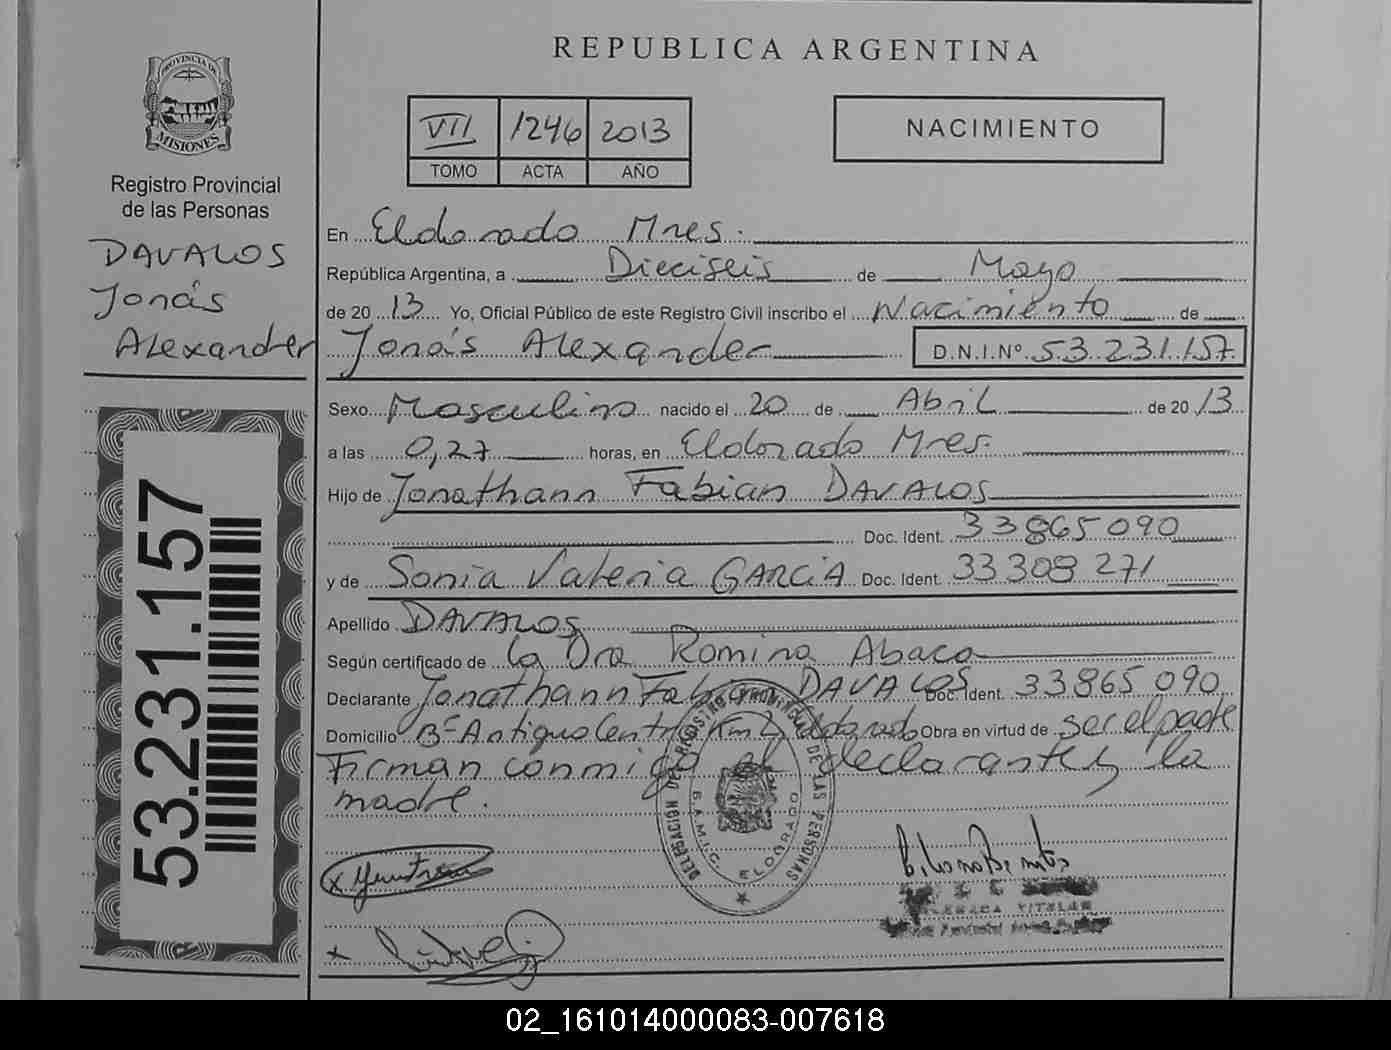 REPUBLICA ARGENTINA
PROVINCIA DE
MISIONES
Registro Provincial
de las Personas
DAVALOS
Jonás
Alexander
VII 1246 2013
TOMO ACTA AÑO
NACIMIENTO
En Eldorado Mnes.
República Argentina, a Dieciseis de Mayo
de 20 13 Yo, Oficial Público de este Registro Civil inscribo el Nacimiento de
Jonás Alexander D.N.I.Nº 53.231.157
Sexo Masculino nacido el 20 de Abril de 20 13
a las 0,27 horas, en Eldorado Mnes.
Hijo de Jonathann Fabian DAVALOS
Doc. Ident. 33865090
y de Sonia Valeria GARCIA Doc. Ident. 33308271
Apellido DAVALOS
Según certificado de La Dra Romina Abaca
Declarante Jonathann Fabian DAVALOS Doc. Ident. 33865090
Domicilio Bº Antiguo Centro Km 2 Eldorado Obra en virtud de ser el padre
Firman conmigo el declarante y la
madre.
53.231.157
DELEGACION DEL REGISTRO PROVINCIAL DE LAS PERSONAS
ELDORADO
TITULAR
02_161014000083-007618